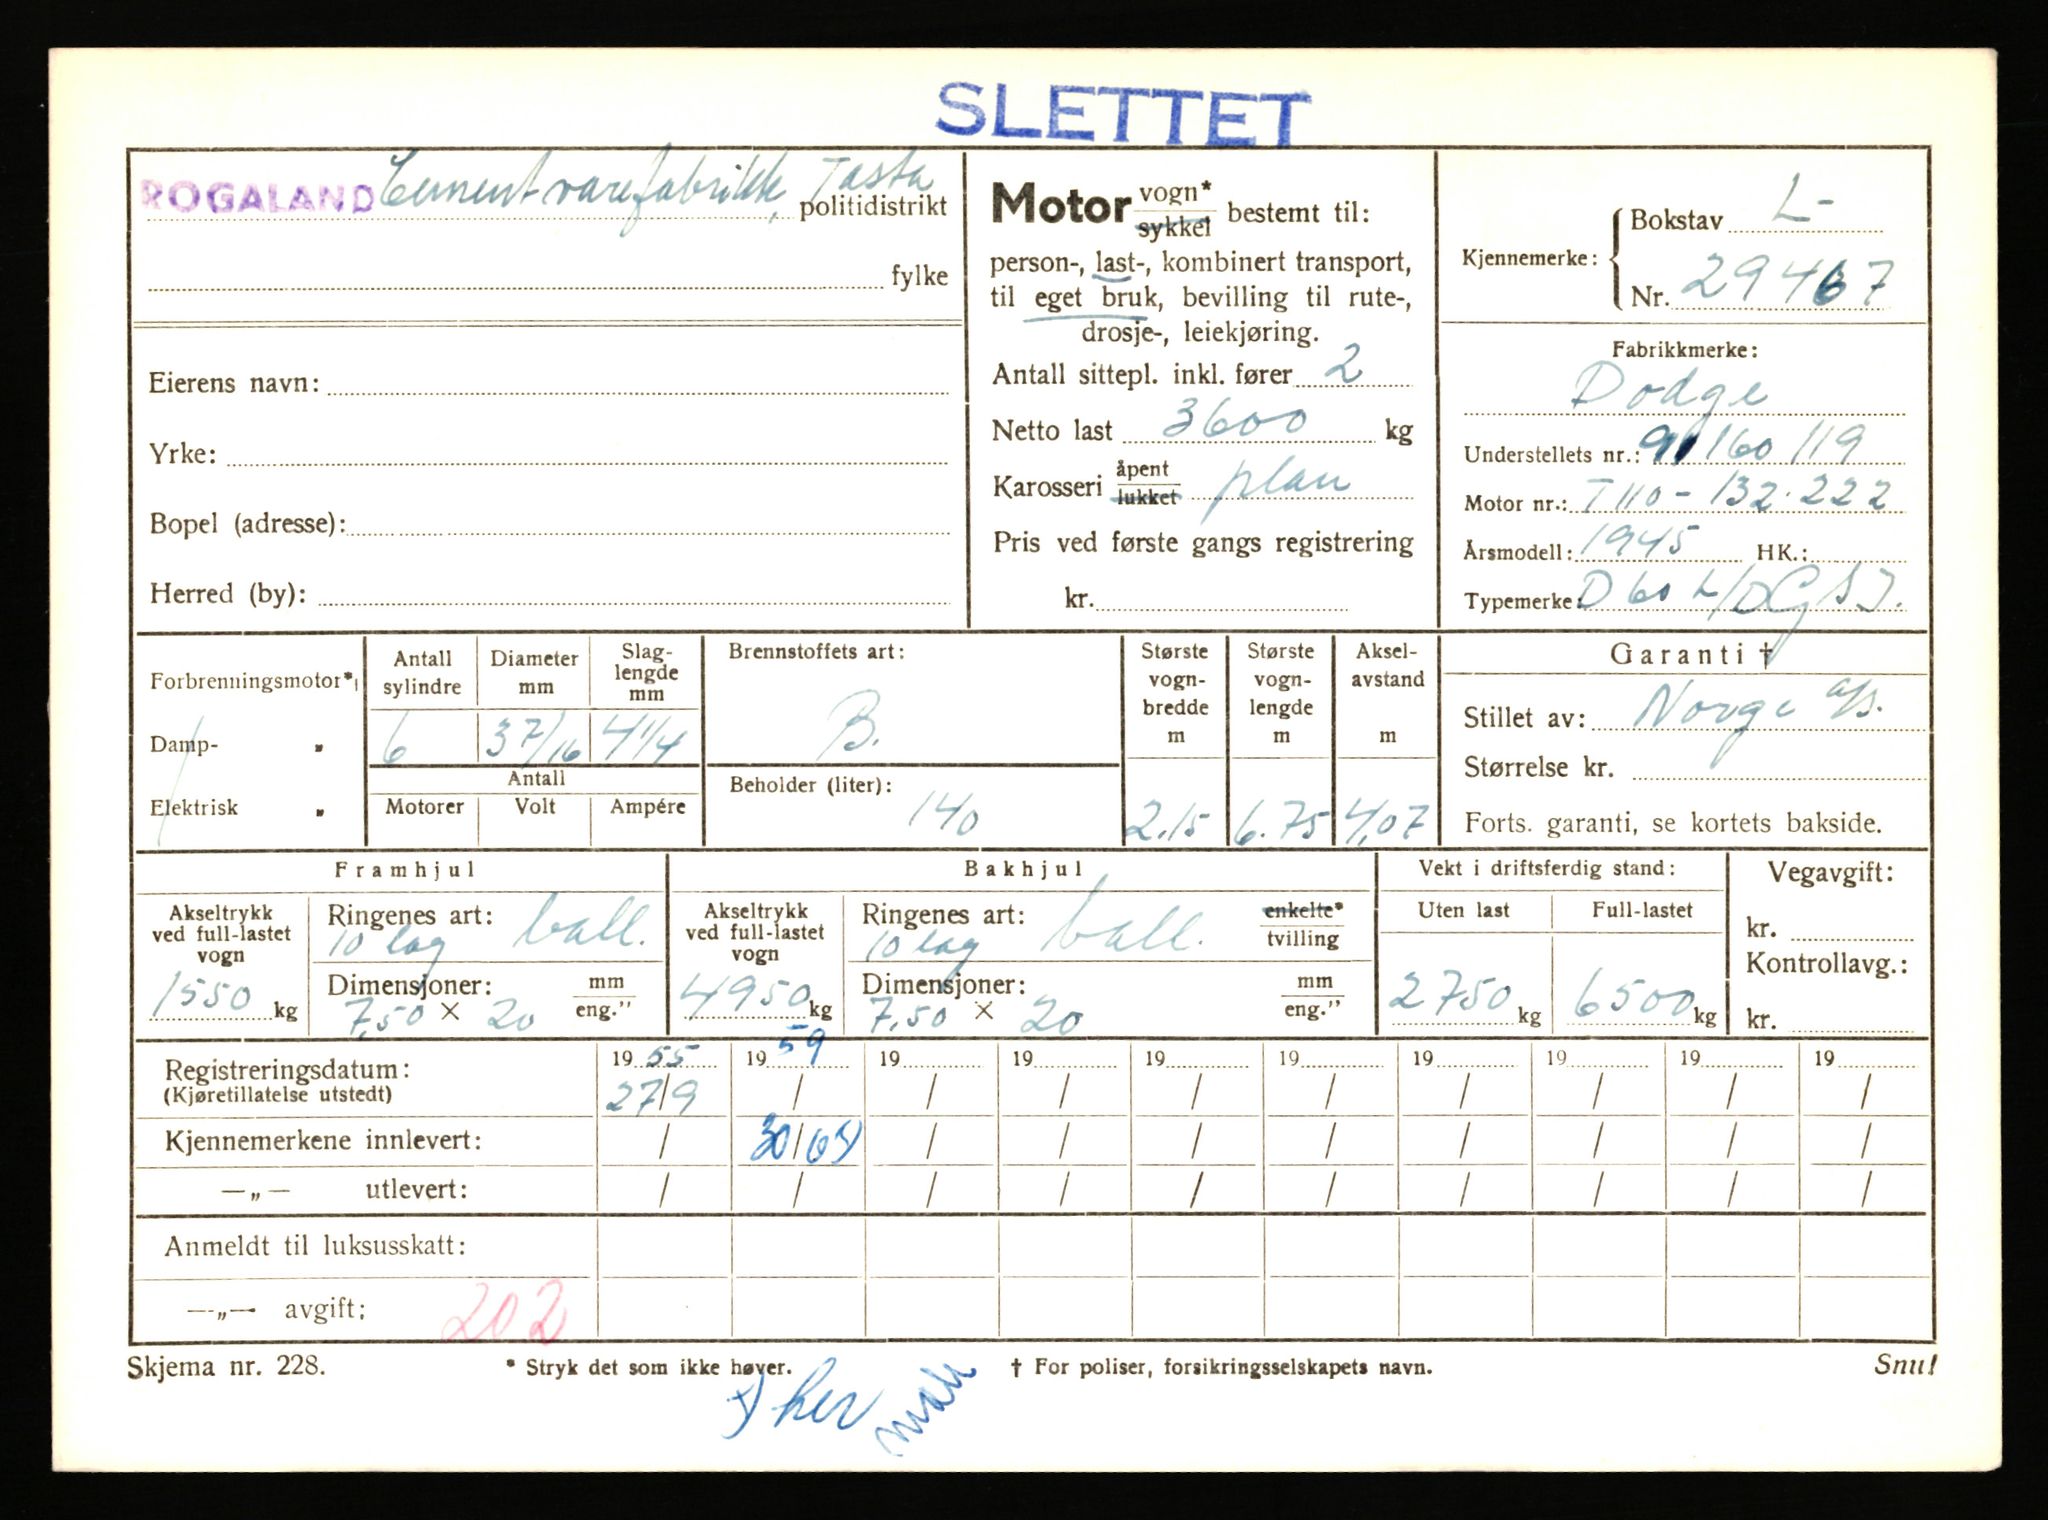 SLETTET
ROGALAND Cementvarefabrikk, Tasta politidistrikt
fylke
Eierens navn:
Yrke:
Bopel (adresse):
Herred (by):
Motor vogn* sykkel bestemt til:
person-, last-, kombinert transport,
til eget bruk, bevilling til rute-,
drosje-, leiekjøring.
Antall sittepl. inkl. fører 2
Netto last 3600 kg
Karosseri åpent lukket plan
Pris ved første gangs registrering
kr.
Kjennemerke: Bokstav L-
Nr. 29467
Fabrikkmerke:
Dodge
Understellets nr.: 91160119
Motor nr.: T110-132.222
Årsmodell: 1945 HK.:
Typemerke: D60L/DG
Forbrenningsmotor*
Damp- „
Elektrisk „
Antall sylindre 6
Diameter mm 37/16
Slag-lengde mm 41/4
Antall
Motorer Volt Ampére
Brennstoffets art:
B.
Beholder (liter):
140
Største vogn-bredde m 2.15
Største vogn-lengde m 6.75
Aksel-avstand m 4,07
Garanti †
Stillet av: Norge a/s.
Størrelse kr.
Forts. garanti, se kortets bakside.
Framhjul
Akseltrykk ved full-lastet vogn
1550 kg
Ringenes art:
10 lag ball.
Dimensjoner: mm eng."
7,50 × 20
Bakhjul
Akseltrykk ved full-lastet vogn
4950 kg
Ringenes art: enkelte* tvilling
10 lag ball.
Dimensjoner: mm eng."
7,50 × 20
Vekt i driftsferdig stand:
Uten last Full-lastet
2750 kg 6500 kg
Vegavgift:
kr.
Kontrollavg.:
kr.
Registreringsdatum: 19 55 19 59 19 19 19 19 19 19 19 19
(Kjøretillatelse utstedt) 27/9 / / / / / / / / /
Kjennemerkene innlevert: / 30/6 x) / / / / / / / /
—„— utlevert: / / / / / / / / / /
Anmeldt til luksusskatt:
—„— avgift: 202
Skjema nr. 228. * Stryk det som ikke høver. † For poliser, forsikringsselskapets navn. Snu!
x) her